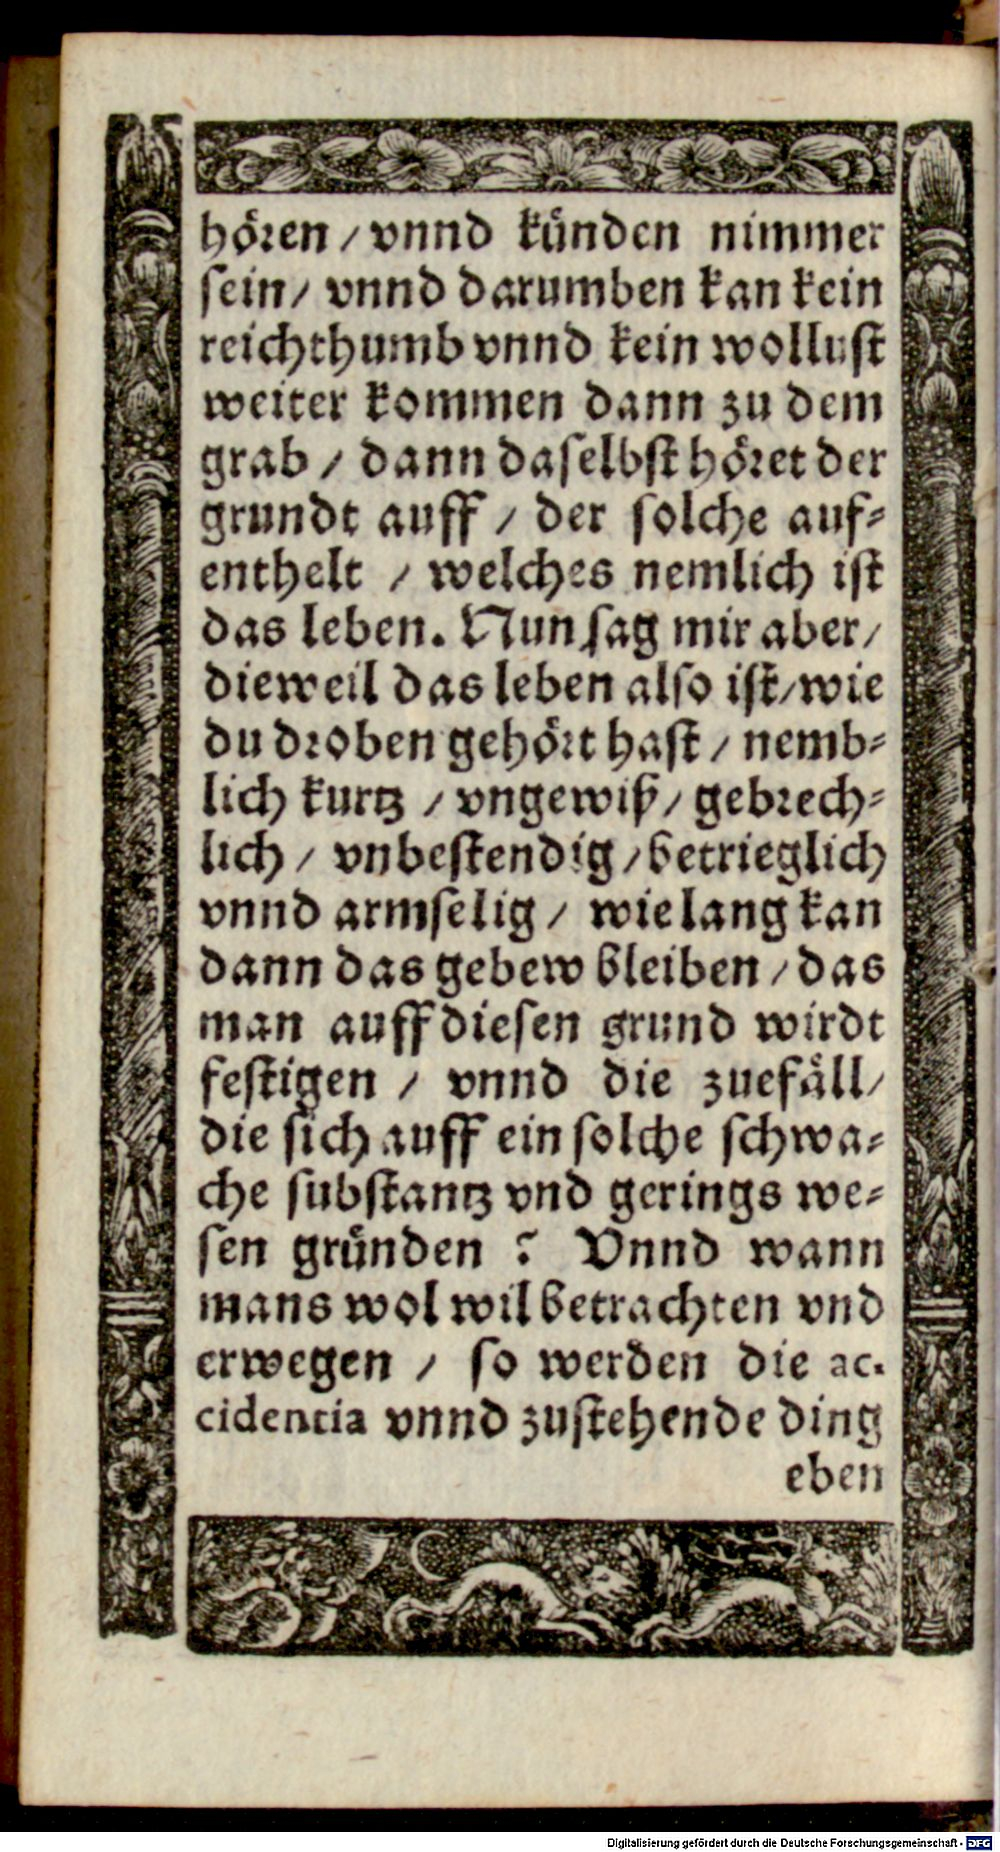 hören / vnnd künden nimmer
sein / vnnd darumben kan kein
reichthumb vnnd kein wollust
weiter kommen dann zu dem
grab / dann daselbst höret der
grundt auff / der solche auf⸗
enthelt / welches nemlich ist
das leben. Nun sag mir aber /
dieweil das leben also ist / wie
du droben gehört hast / nemb⸗
lich kurtz / vngewiß / gebrech⸗
lich / vnbestendig / betrieglich
vnnd armselig / wie lang kan
dann das gebew bleiben / das
man auff diesen grund wirdt
festigen / vnnd die zuefäll /
die sich auff ein solche schwa⸗
che substantz vnd gerings we⸗
sen gründen ? Vnnd wann
mans wol wil betrachten vnd
erwegen / so werden die ac-
cidentia vnnd zustehende ding
eben
Digitalisierung gefördert durch die Deutsche Forschungsgemeinschaft - DFG